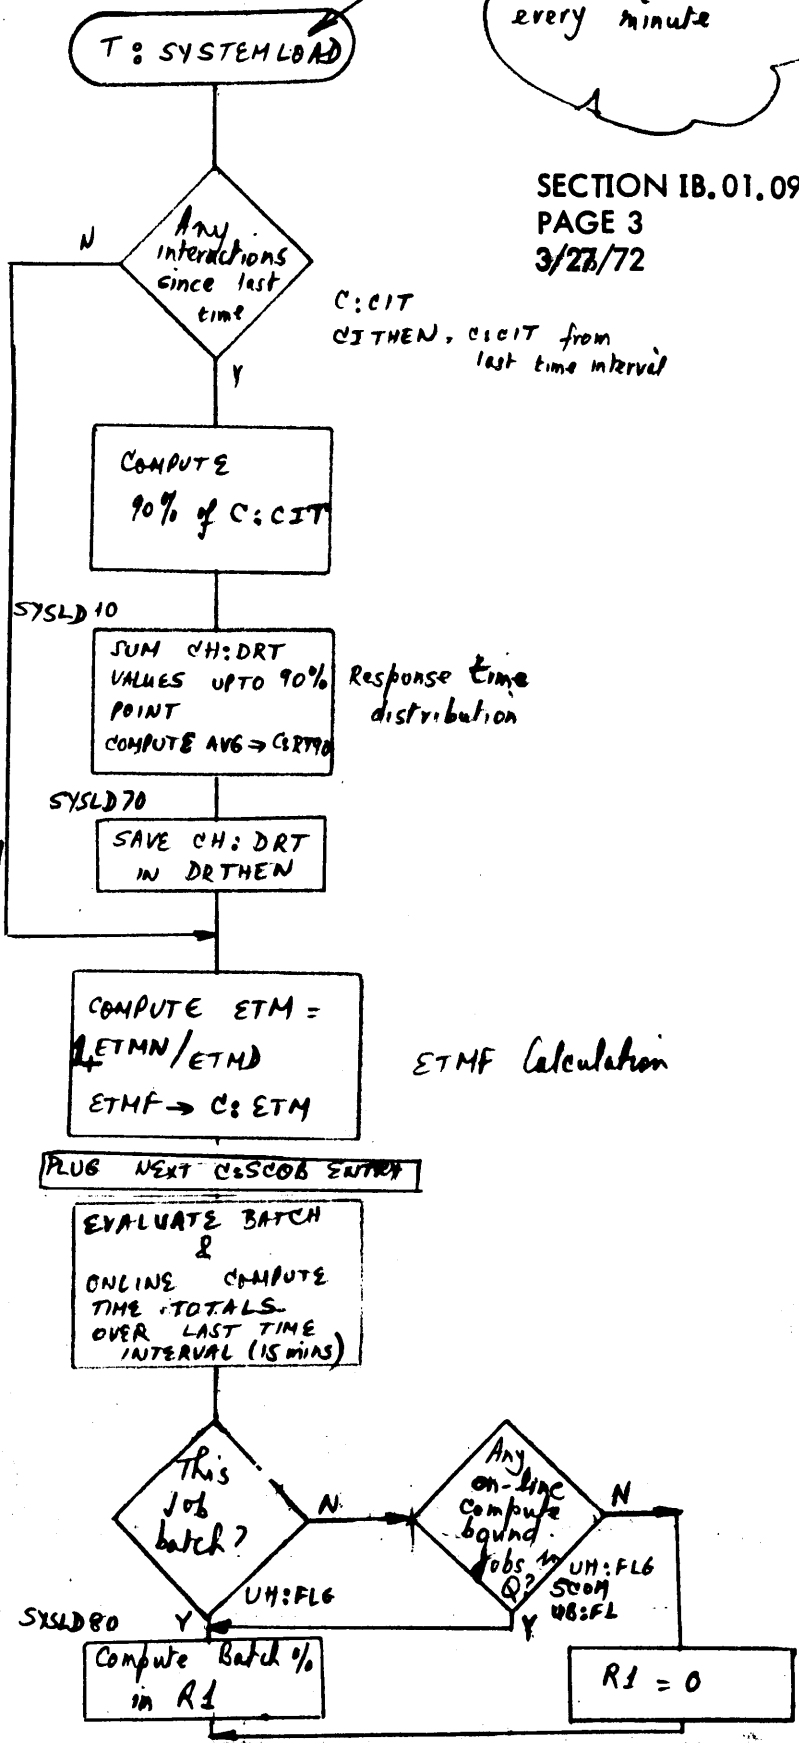 every minute
T: SYSTEMLOAD
SECTION IB.01.09
PAGE 3
3/27/72
Any
interactions
since last
time
N
Y
C:CIT
CITHEN, C:CIT from
last time interval
COMPUTE
90% of C:CIT
SYSLD10
SUM CH:DRT
VALUES UPTO 90%
POINT
COMPUTE AVG ⇒ C:RT90
Response time
distribution
SYSLD70
SAVE CH: DRT
IN DRTHEN
COMPUTE ETM =
1+ETMN/ETMD
ETMF → C: ETM
ETMF Calculation
PLUG NEXT C:SCOB ENTRY
EVALUATE BATCH
&
ONLINE COMPUTE
TIME TOTALS
OVER LAST TIME
INTERVAL (15 mins)
This
Job
batch?
N
UH:FLG
Y
Any
on-line
compute
bound
Jobs in
Q?
N
UH:FLG
SCOM
UB:FL
Y
SYSLD80
Compute Batch %
in R1
R1 = 0